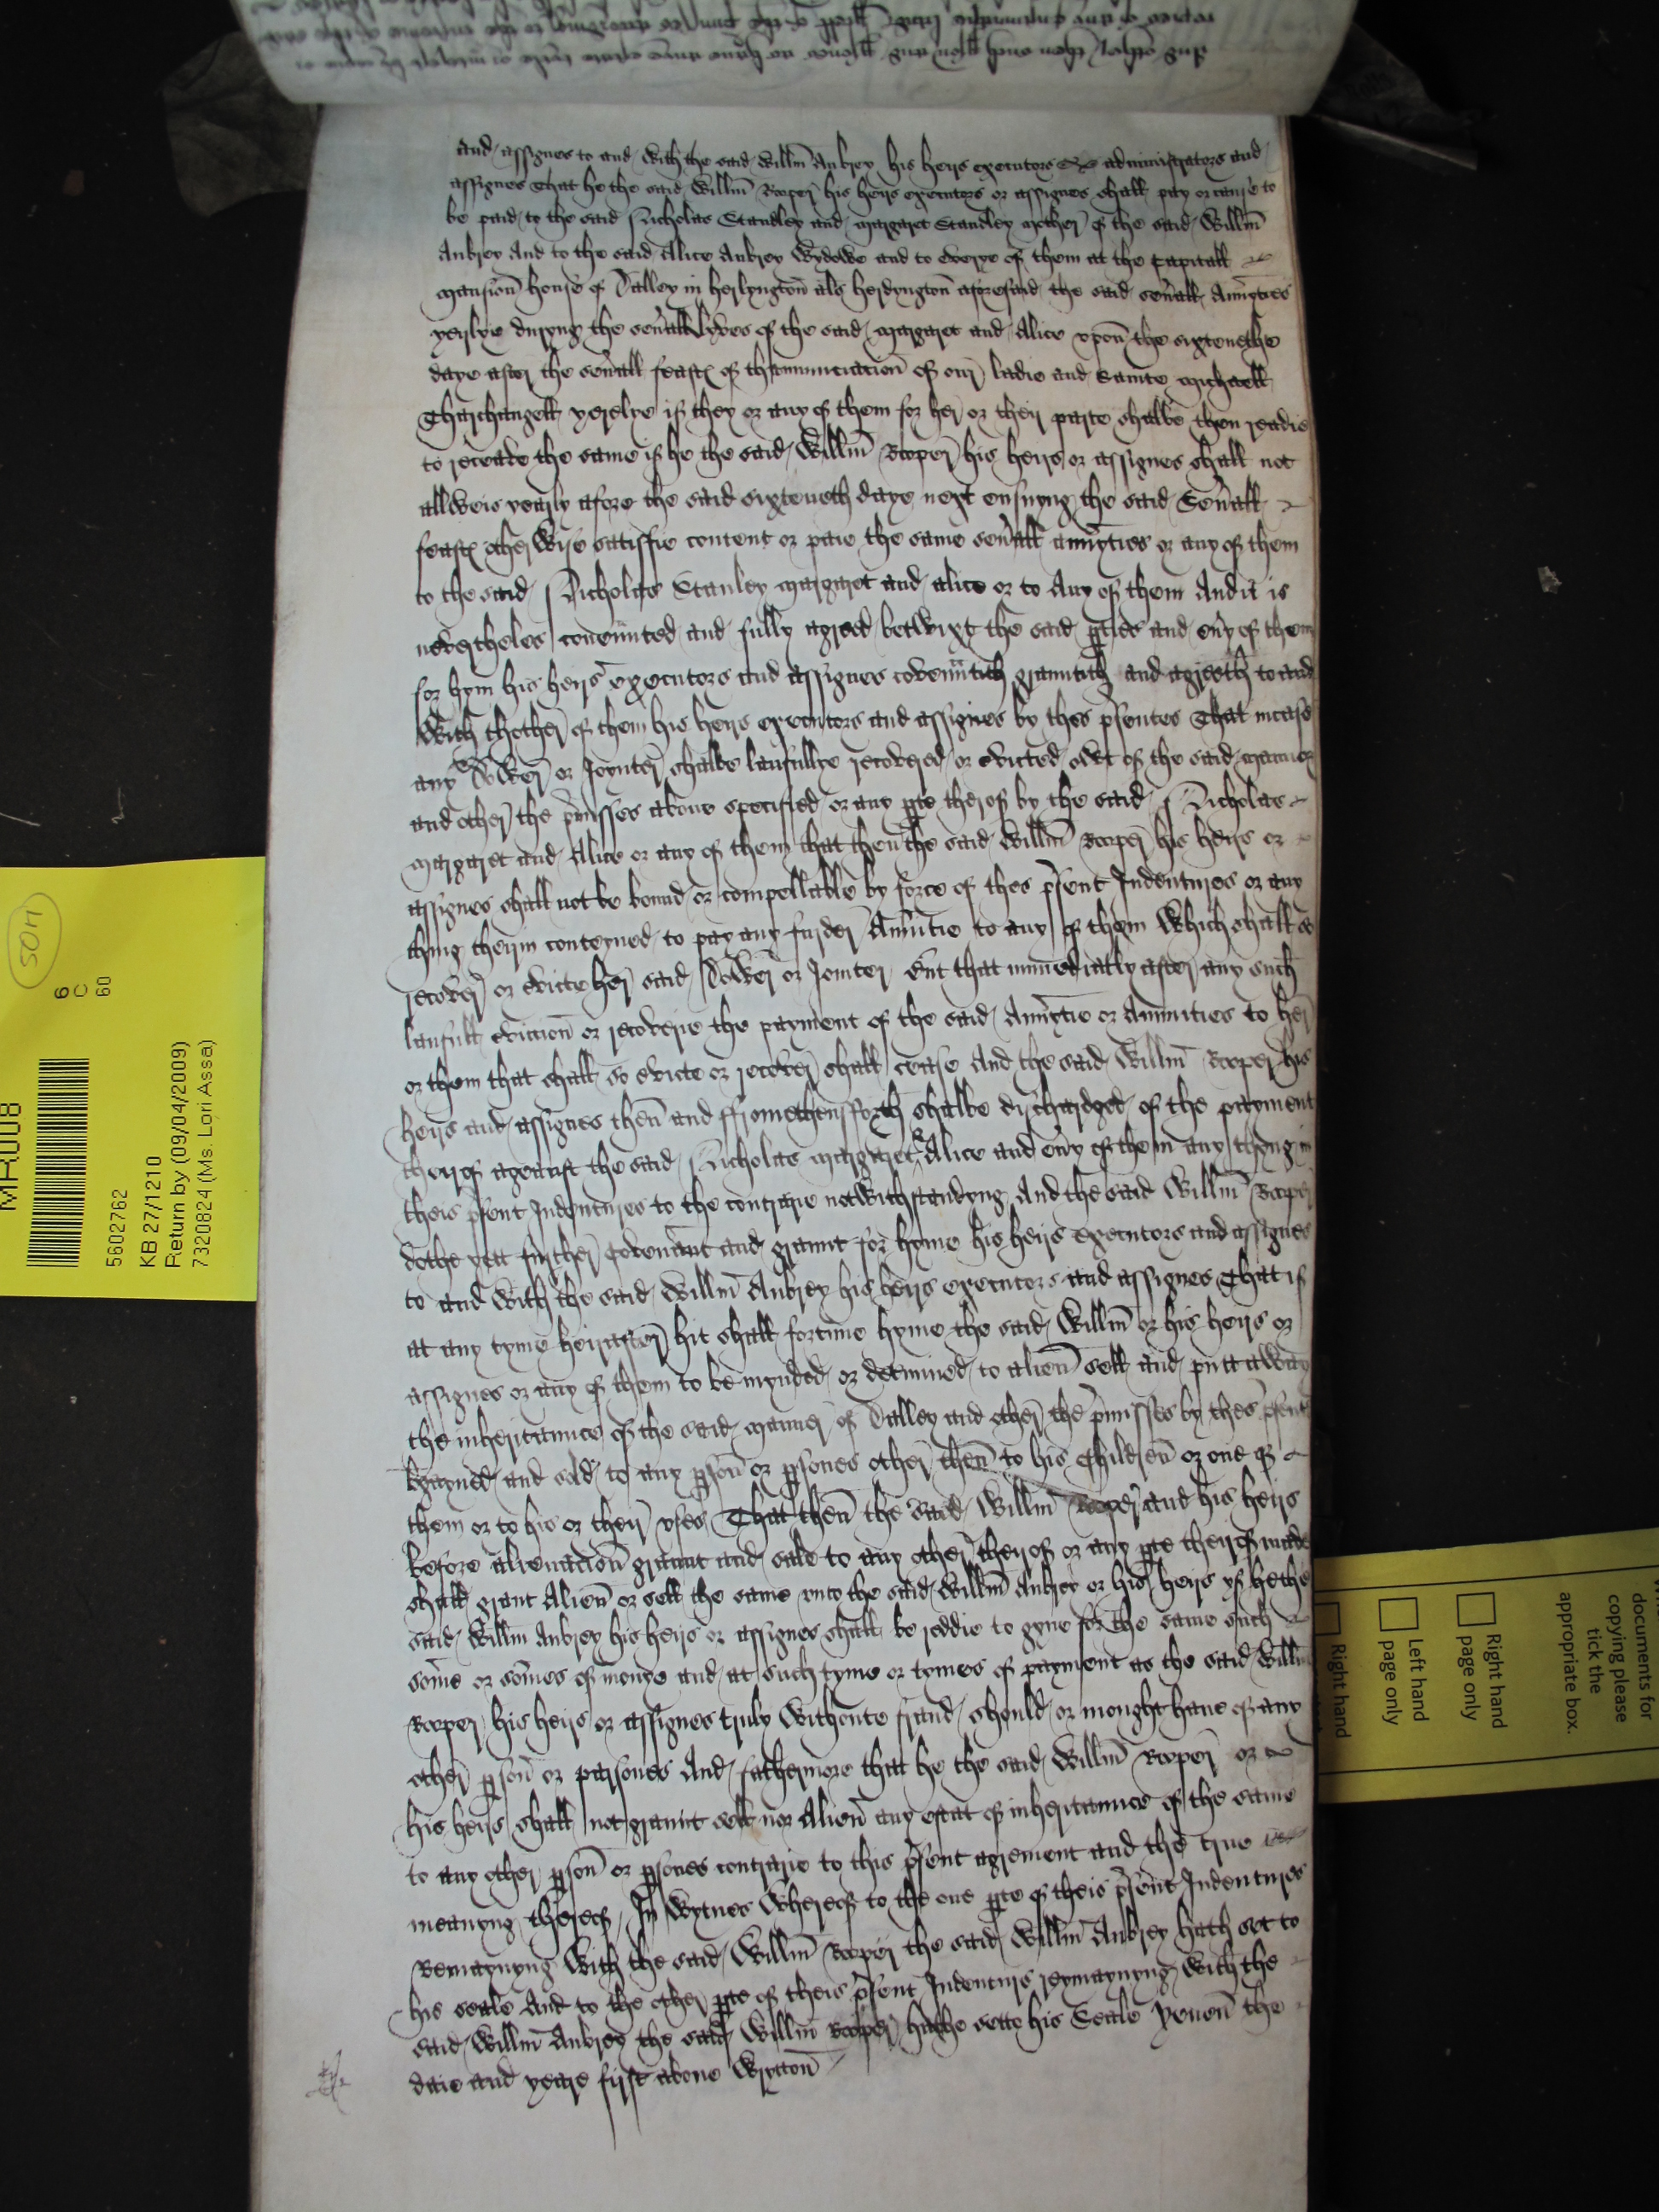 and assignes to and with the said Willm Aubrey his heirs executors administrators and
assignes That he the said Willm Rooper his heirs executors or assignes shall pay or cause to
be paid to the said Nicholas Standley and margaret Standley mother of the said Willm
Aubrey And to the said Alice Aubrey Wydowe and to everye of them at the Capitall
mansion house of Dalley in herlyngton als herdyngton aforesaid the said sevall Anuyties
yerlye duryng the sevall lyves of the said margaret and Alice upon the sixtenethe
daye after the sevall feast of thannunciacion of our ladie and Saincte michaell
Tharchangell yerelye if they or any of them for her or their parte shalbe then readie
to receave the same if he the said Willm Rooper his heirs or assignes shall not
allweis yearly afore the said sixteneth daye next ensuyng the said Sevall
feast otherwise satisfie content or paie the same sevall annyties or any of them
to the said Nicholas Stanley margaret and alice or to Any of them And it is
nevertheles covennted and fully agreed betwixt the said pties and evy of them
for hym his heirs executors and assignes covenntith grauntith and agreeth to and
with thother of them his heirs executors and assignes by thes psentes That incase
any Dower or Joynter shalbe laufullye recovered or evicted owt of the said manner
and other the pmisses above specified or any pte therof by the said Nicholas
margaret and Alice or any of them that then the said Willm Rooper his heirs or
assignes shall not be bound or compellable by force of thes psent Indentures or any
thing therin conteyned to pay any furder Anuitie to any of them which shall so
recover or evicte her said Dower or Jointer but that immediatly after any such
laufull eviction or recoverie the payment of the said Anuytie or Annuities to her
or them that shall so evicte or recover shall cease And the said Willm Rooper his
heirs and assignes then and ffromethensforth shalbe dischardged of the payment
therof against the said Nicholas margaret & Alice and evy of them any thyng in
theis psent Indentures to the contrarie notwithstandyng And the said Willm Rooper
dothe yett further Covenant and graunt for hyme his heirs executors and assignes
to and with the said Willm Aubrey his heirs executors and assignes That if
at any tyme heirafter hit shall fortune hyme the said Willm or his heirs or
assignes or any of them to be mynded or determined to alien sell and putt away
the inheritaunce of the said manner of Dalley and other the pmisses by thes psent
bgayned and sold to any pson or psones other then to his Children or one of
them or to his or their uses That then the said Willm Rooper and his heirs
before alienacion graunt and sale to any other therof or any pte therof made
shall grant Alien or sell the same unto the said Willm Aubrey or his heirs yf he the
said Willm Aubrey his heirs or assignes shall be reddie to gyve for the same such
some or somes of monye and at such tyme or tymes of payment as the said Willm
Rooper his heirs or assignes truly withoute fraud should or mought have of any
other pson or parsones And fathermore that he the said Willm Rooper or
his heirs shall not graunt sell nor Alien any estat of inheritaunce of the same
to any other pson or psones contrarie to this psent agrement and the true
meanyng therof In wytnes wherof to the one pte of theis psent Indentures
Remaynyng with the said Willm Rooper the said Willm Aubrey hath set to
his seale And to the other pte of theis psent Indenturs reymaynyng with the
said Willm Aubrey the said Willm Rooper hathe sette his Seale Yeuen the
daie and yeare first above wrytton
SOM
6
C
60
MR008
5602762
KB 27/1210
Return by (09/04/2009)
7320824 (Ms. Lori Assa)
documents for
copying please
tick the
appropriate box.
Right hand
page only
Left hand
page only
Right hand